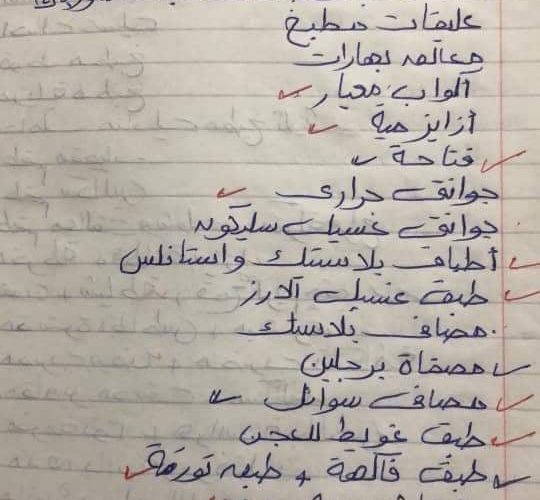 عليقات مطبخ
معالق بهارات
أكواب معيار
أزايز مية
فتاحة
جوانتى حرارى
جوانتى غسيل سليكون
أطباق بلاستك واستانلس
طبق غسيل الارز
مصافى بلاستك
مصفاة برجلين
مصافى سوائل
طبق غويط للعجن
طبق فاكهة + طبق تورتة